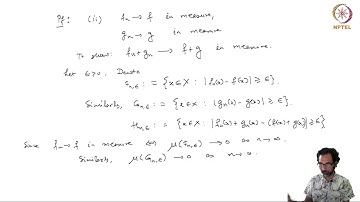 Pf: (ii) fn → f in measure,
gn → g in measure
To show: fn + gn → f + g in measure.
Let ε>0. Denote
En,ε := {x∈X : |fn(x) - f(x)| ≥ ε}.
Similarly, Gn,ε := {x∈X : |gn(x) - g(x)| ≥ ε}.
Hn,ε := {x∈X : |fn(x) + gn(x) - (f(x) + g(x))| ≥ ε}
Since fn → f in measure ⇔ μ(En,ε) → 0 as n → ∞
Similarly, μ(Gn,ε) → 0 as n → ∞.
NPTEL